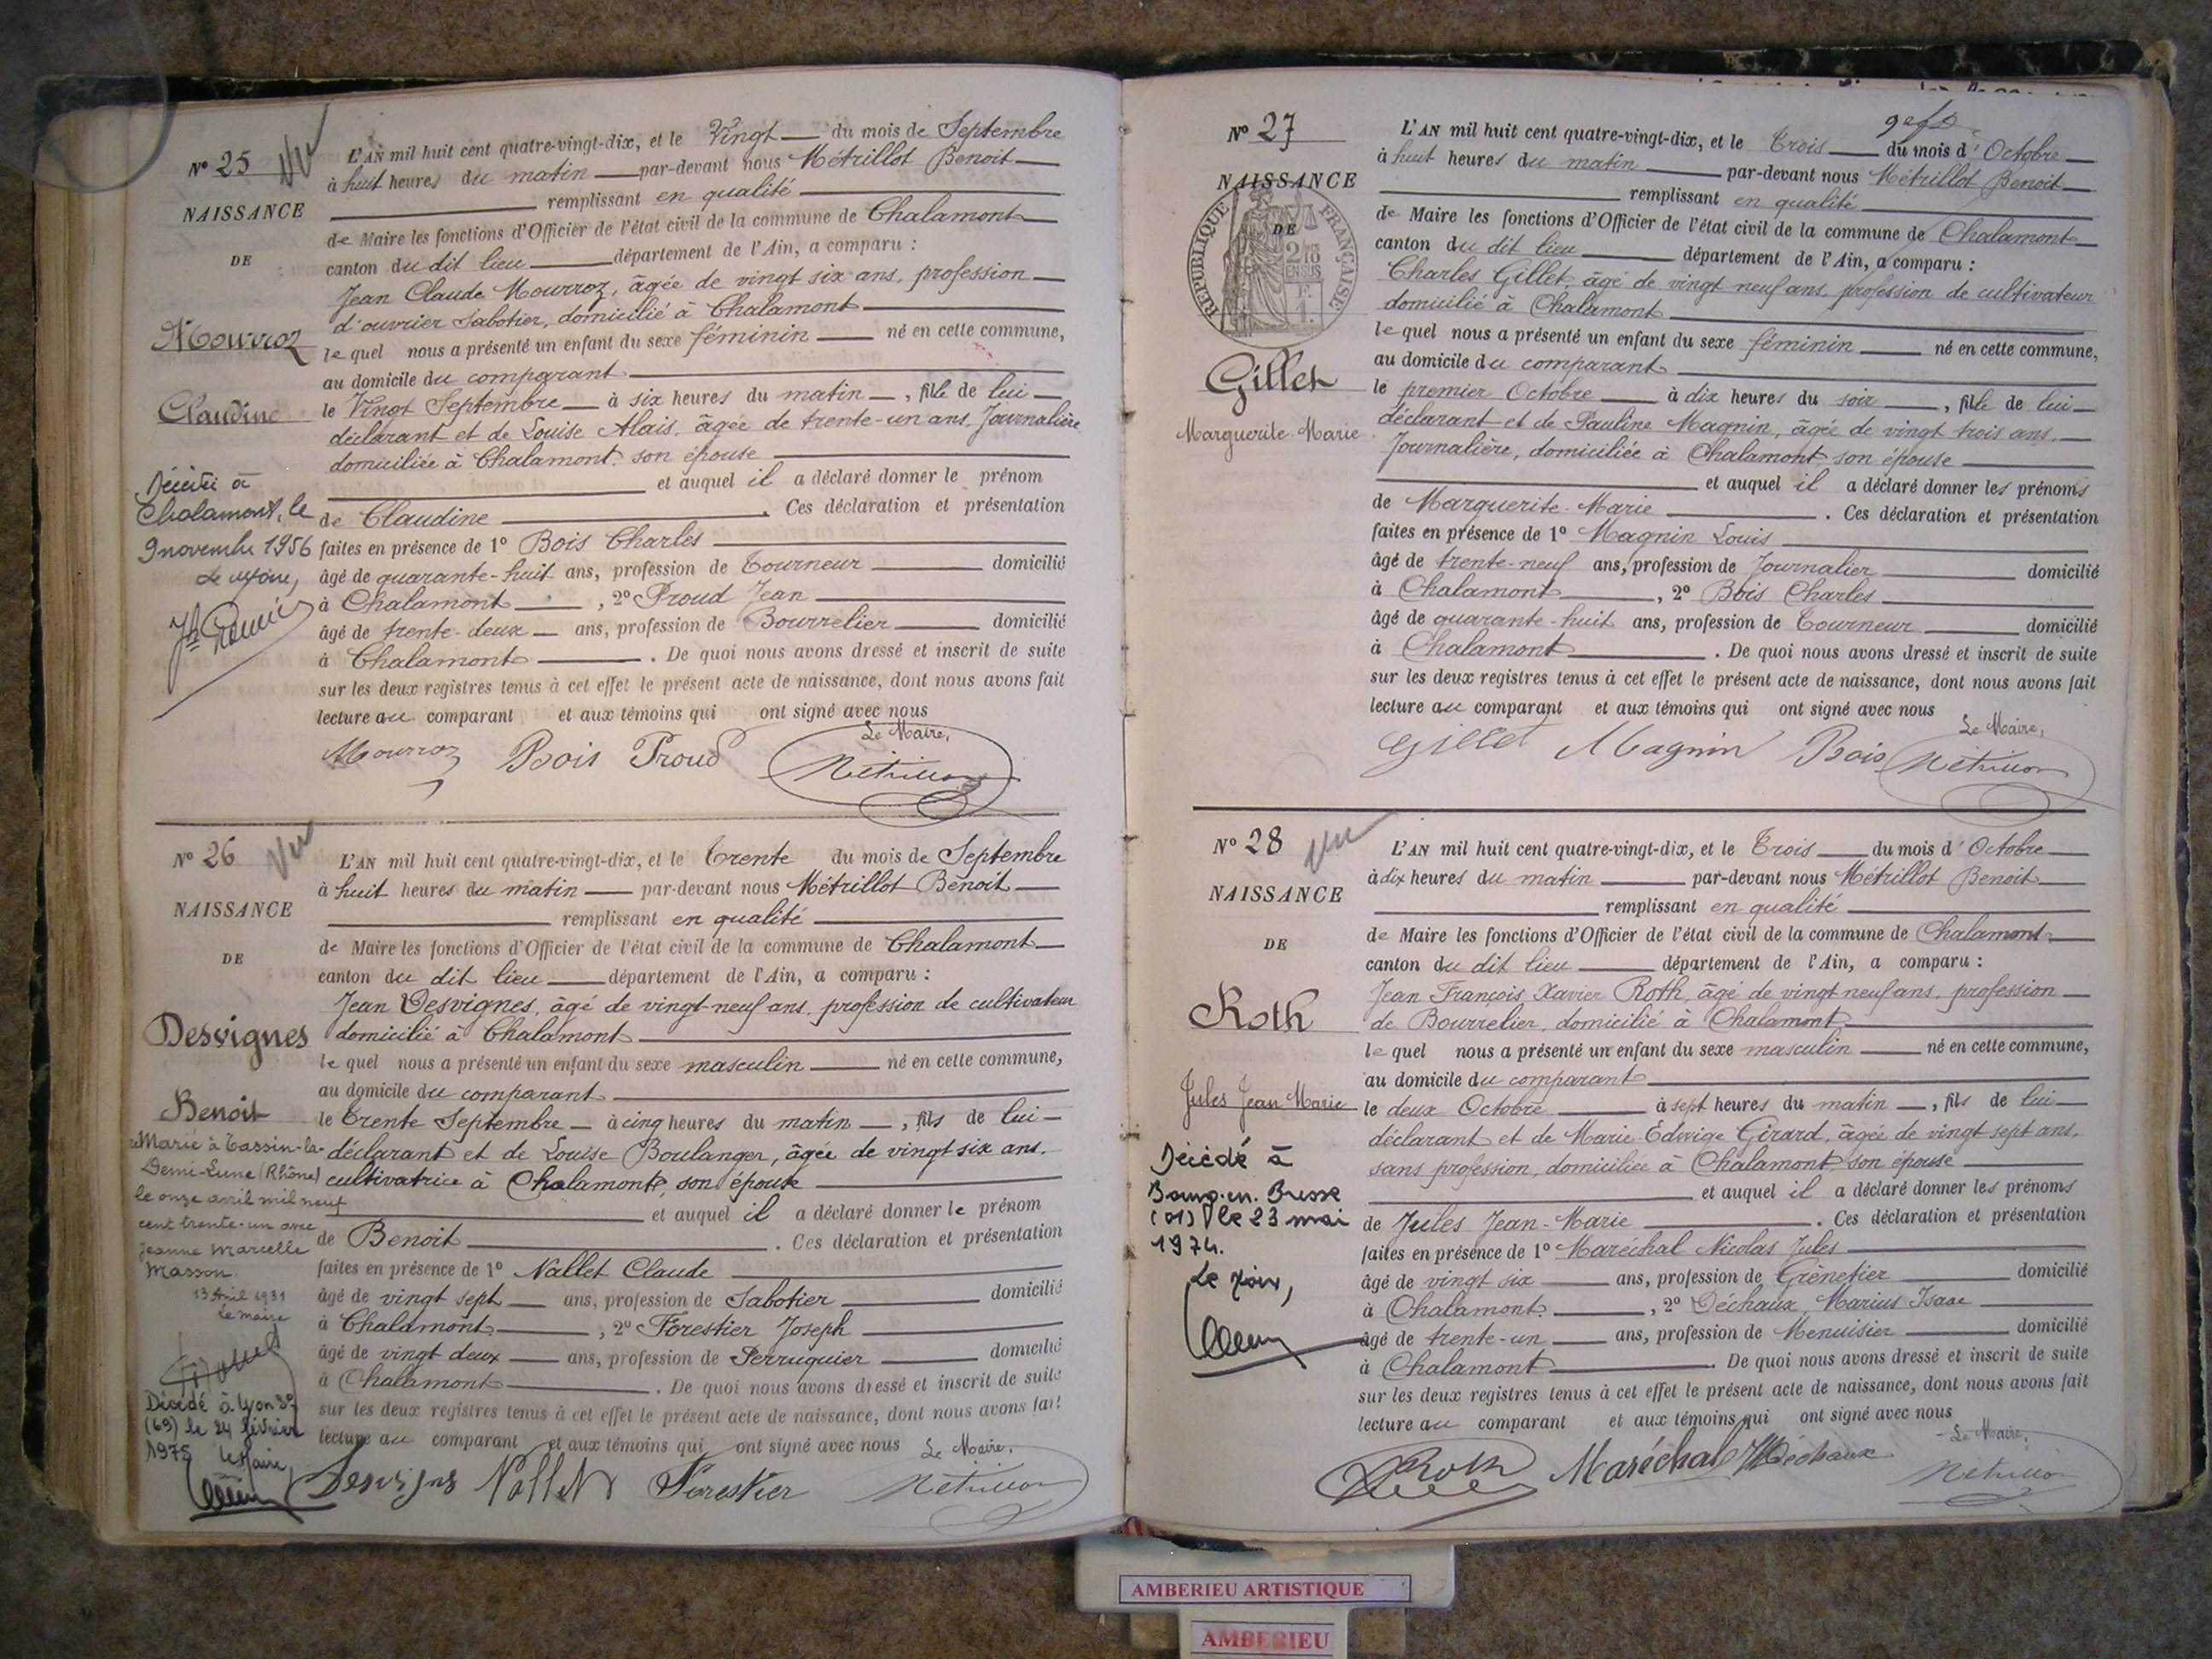 N° 25
Vu
NAISSANCE
DE
Mourroz
Claudine
Décédée à
Chalamont, le
9 novembre 1956
Le Maire,
L'AN mil huit cent quatre-vingt-dix, et le Vingt du mois de Septembre
à huit heures du matin par-devant nous Métrillot Benoit
remplissant en qualité
de Maire les fonctions d'Officier de l'état civil de la commune de Chalamont
canton du dit lieu département de l'Ain, a comparu :
Jean Claude Mourroz, âgée de vingt six ans, profession
d'ouvrier Sabotier, domicilié à Chalamont
le quel nous a présenté un enfant du sexe féminin né en cette commune,
au domicile du comparant
le Vingt Septembre à six heures du matin, fille de lui
déclarant et de Louise Alais, âgée de trente-un ans, Journalière
domiciliée à Chalamont son épouse
et auquel il a déclaré donner le prénom
de Claudine. Ces déclaration et présentation
faites en présence de 1° Bois Charles
âgé de quarante-huit ans, profession de Tourneur domicilié
à Chalamont, 2° Proud Jean
âgé de trente-deux ans, profession de Bourrelier domicilié
à Chalamont. De quoi nous avons dressé et inscrit de suite
sur les deux registres tenus à cet effet le présent acte de naissance, dont nous avons fait
lecture au comparant et aux témoins qui ont signé avec nous
Le Maire,
Mourroz Bois Proud Métrillot
N° 26
Vu
NAISSANCE
DE
Desvignes
Benoit
Marié à Tassin-la-
Demi-Lune (Rhône)
le onze avril mil neuf
cent trente-un avec
Jeanne Marcelle
Masson
13 Avril 1931
Le maire
Décédé à Lyon 3e
(69) le 24 février
1975 Le Maire,
L'AN mil huit cent quatre-vingt-dix, et le Trente du mois de Septembre
à huit heures du matin par-devant nous Métrillot Benoit
remplissant en qualité
de Maire les fonctions d'Officier de l'état civil de la commune de Chalamont
canton du dit lieu département de l'Ain, a comparu :
Jean Desvignes, âgé de vingt-neuf ans, profession de cultivateur
domicilié à Chalamont
le quel nous a présenté un enfant du sexe masculin né en cette commune,
au domicile du comparant
le Trente Septembre à cinq heures du matin, fils de lui
déclarant et de Louise Boulanger, âgée de vingt six ans.
cultivatrice à Chalamont, son épouse
et auquel il a déclaré donner le prénom
de Benoit. Ces déclaration et présentation
faites en présence de 1° Nallet Claude
âgé de vingt sept ans, profession de Sabotier domicilié
à Chalamont, 2° Forestier Joseph
âgé de vingt deux ans, profession de Perruquier domicilié
à Chalamont. De quoi nous avons dressé et inscrit de suite
sur les deux registres tenus à cet effet le présent acte de naissance, dont nous avons fait
lecture au comparant et aux témoins qui ont signé avec nous Le Maire,
Desvignes Nallet Forestier Métrillot
N° 27
NAISSANCE
DE
RÉPUBLIQUE FRANÇAISE
2/10
EN SUS
Gillet
Marguerite-Marie
L'AN mil huit cent quatre-vingt-dix, et le Trois du mois d'Octobre
à huit heures du matin par-devant nous Métrillot Benoit
remplissant en qualité
de Maire les fonctions d'Officier de l'état civil de la commune de Chalamont
canton du dit lieu département de l'Ain, a comparu :
Charles Gillet, âgé de vingt neuf ans, profession de cultivateur
domicilié à Chalamont
le quel nous a présenté un enfant du sexe féminin né en cette commune,
au domicile du comparant
le premier Octobre à dix heures du soir, fille de lui
déclarant et de Pauline Magnin, âgée de vingt trois ans,
Journalière, domiciliée à Chalamont, son épouse
et auquel il a déclaré donner les prénoms
de Marguerite-Marie. Ces déclaration et présentation
faites en présence de 1° Magnin Louis
âgé de trente-neuf ans, profession de Journalier domicilié
à Chalamont, 2° Bois Charles
âgé de quarante-huit ans, profession de Tourneur domicilié
à Chalamont. De quoi nous avons dressé et inscrit de suite
sur les deux registres tenus à cet effet le présent acte de naissance, dont nous avons fait
lecture au comparant et aux témoins qui ont signé avec nous
Le Maire,
Gillet Magnin Bois Métrillot
N° 28
Vu
NAISSANCE
DE
Roth
Jules Jean Marie
Décédé à
Bourg-en-Bresse
(01) le 23 mai
1974.
Le Maire,
L'AN mil huit cent quatre-vingt-dix, et le Trois du mois d'Octobre
à dix heures du matin par-devant nous Métrillot Benoit
remplissant en qualité
de Maire les fonctions d'Officier de l'état civil de la commune de Chalamont
canton du dit lieu département de l'Ain, a comparu :
Jean François Xavier Roth, âgé de vingt neuf ans, profession
de Bourrelier, domicilié à Chalamont
le quel nous a présenté un enfant du sexe masculin né en cette commune,
au domicile du comparant
le deux Octobre à sept heures du matin, fils de lui
déclarant et de Marie Edwige Girard, âgée de vingt sept ans,
sans profession, domiciliée à Chalamont son épouse
et auquel il a déclaré donner les prénoms
de Jules Jean-Marie. Ces déclaration et présentation
faites en présence de 1° Maréchal Nicolas Jules
âgé de vingt six ans, profession de Grènetier domicilié
à Chalamont, 2° Déchaux, Marius Isaac
âgé de trente-un ans, profession de Menuisier domicilié
à Chalamont. De quoi nous avons dressé et inscrit de suite
sur les deux registres tenus à cet effet le présent acte de naissance, dont nous avons fait
lecture au comparant et aux témoins qui ont signé avec nous
Le Maire,
Roth Maréchal Déchaux Métrillot
AMBERIEU ARTISTIQUE
AMBERIEU